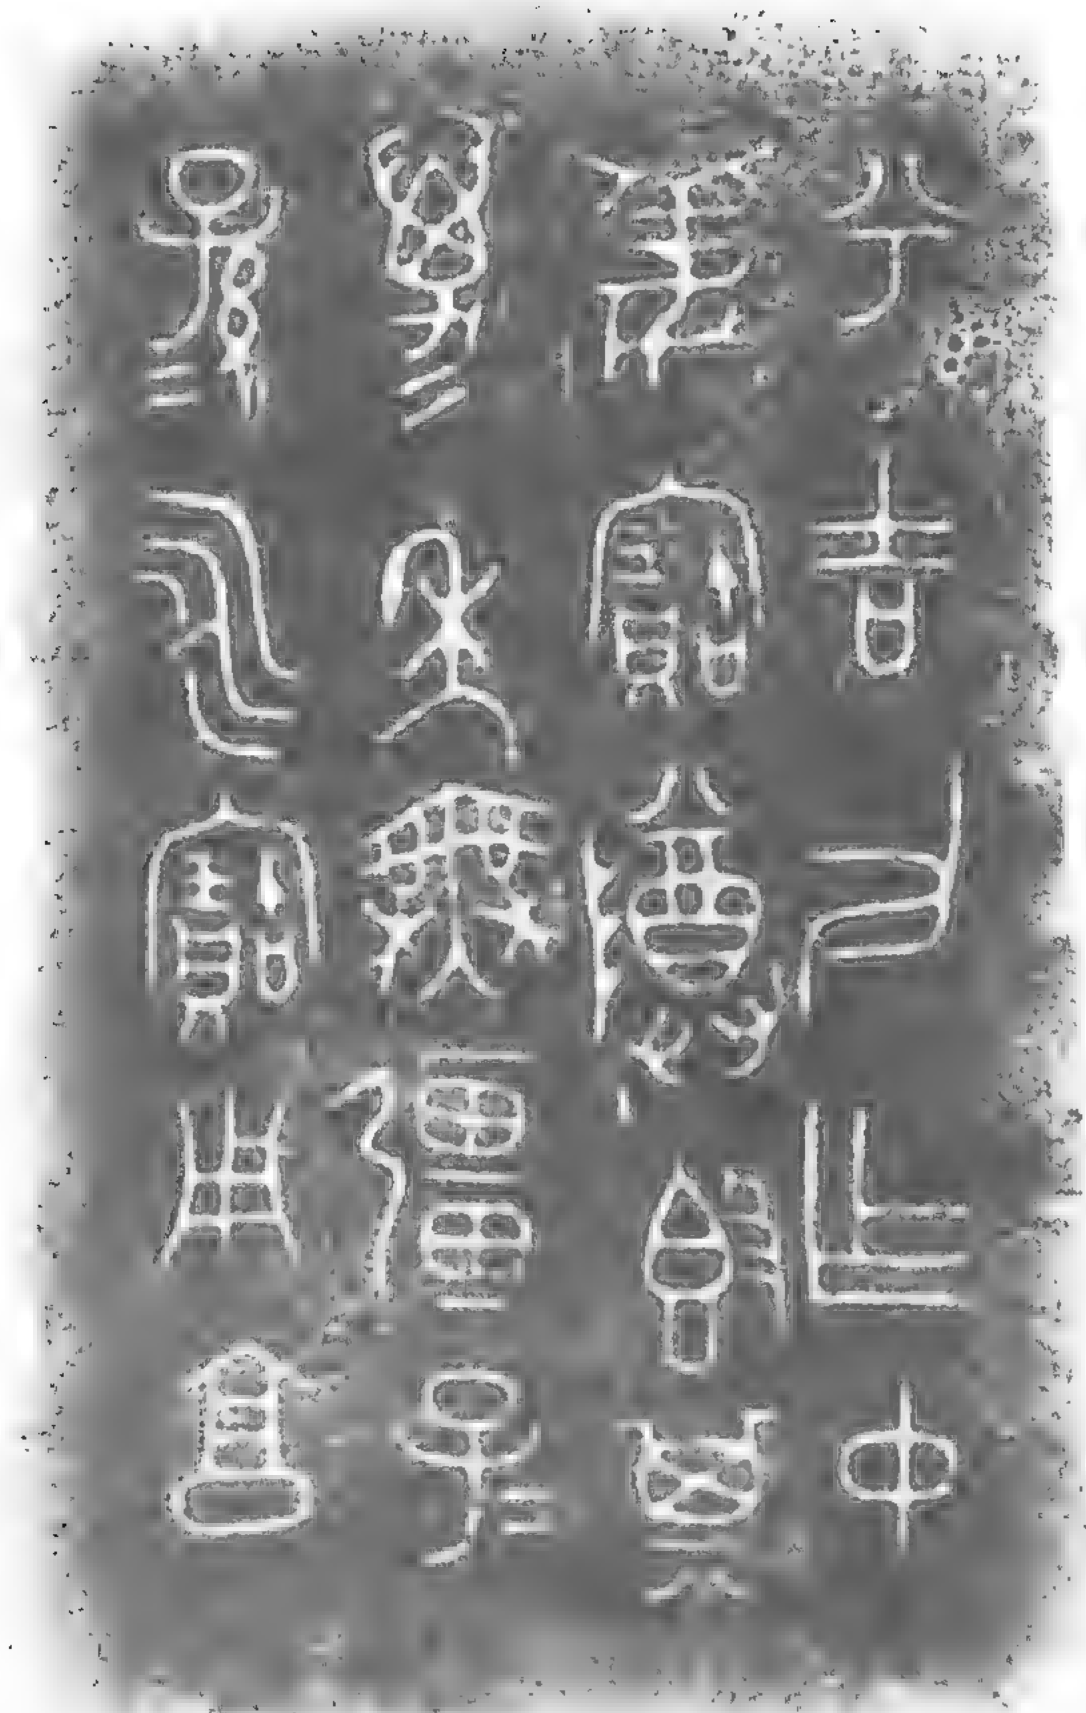 兮吉父乍中
姜寶尊𣪘其
萬年無疆子=
孫=永寶用享